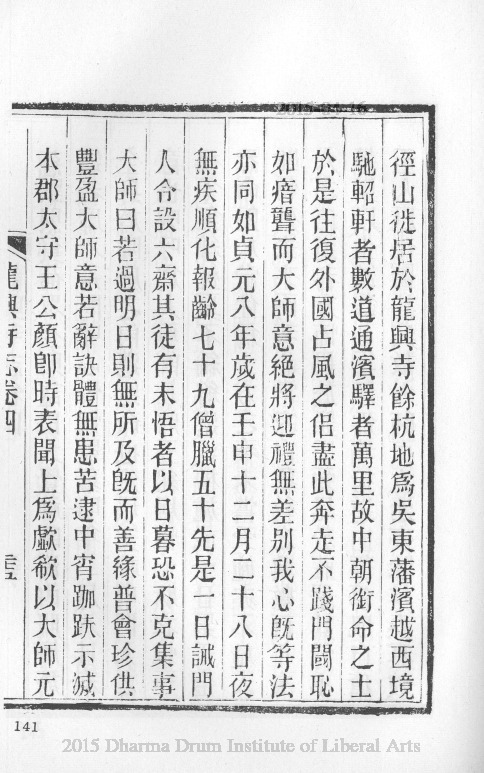 徑山徙居於龍興寺餘杭地爲吳東藩濱越西境
馳軺軒者數道通濱驛者萬里故中朝銜命之士
於是往復外國占風之侶盡此奔走不踐門閾恥
如瘖聾而大師意絕將迎禮無差別我心旣等法
亦同如貞元八年歲在壬申十二月二十八日夜
無疾順化報齡七十九僧臘五十先是一日誡門
人令設六齋其徒有未悟者以日暮恐不克集事
大師曰若過明日則無所及旣而善緣普會珍供
豐盈大師意若辭訣體無患苦逮中宵跏趺示滅
本郡太守王公顏卽時表聞上爲歔欷以大師元
龍興寺志卷四
141
2015 Dharma Drum Institute of Liberal Arts